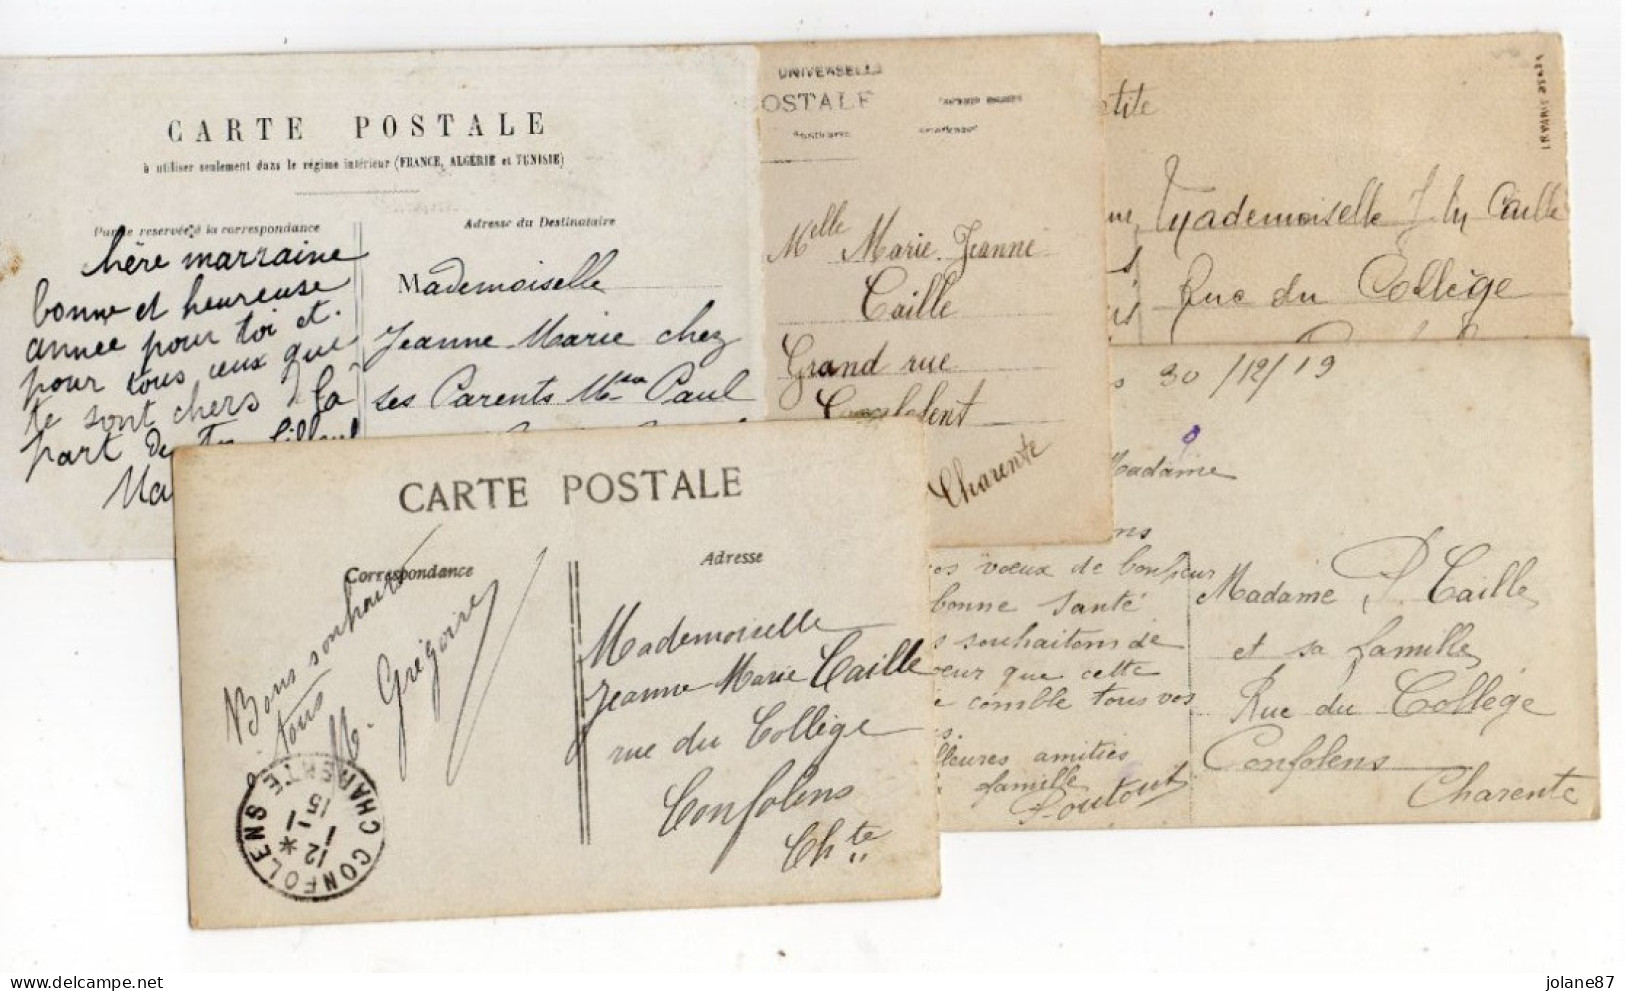 CARTE POSTALE
à utiliser seulement dans le régime intérieur (FRANCE, ALGÉRIE et TUNISIE)
Partie reservée à la correspondance
Adresse du Destinataire
hère marraine
bonne et heureuse
année pour toi et
pour tous ceux que
te sont chers de la
part de
Mademoiselle
Jeanne Marie chez
ses Parents Paul
UNIVERSELLE
OSTALE
Melle Marie Jeanne
Caille
Grand rue
Confolent
Charente
etite
Mademoiselle J My Caille
Rue du Collège
30/12/19
Madame
vœux de bonheur
bonne Santé
souhaitons de
que cette
comble tous vos
lleures amitiés
famille
Poutout
Madame P. Caille
et sa famille
Rue du Collège
Confolens
Charente
CARTE POSTALE
Correspondance
Adresse
Bons souhaits
tous
M. Grégoire
Mademoiselle
Jeanne Marie Caille
rue du Collège
Confolens
Chte
CONFOLENS
CHARENTE
12 *
1 - 1
15
jolane87